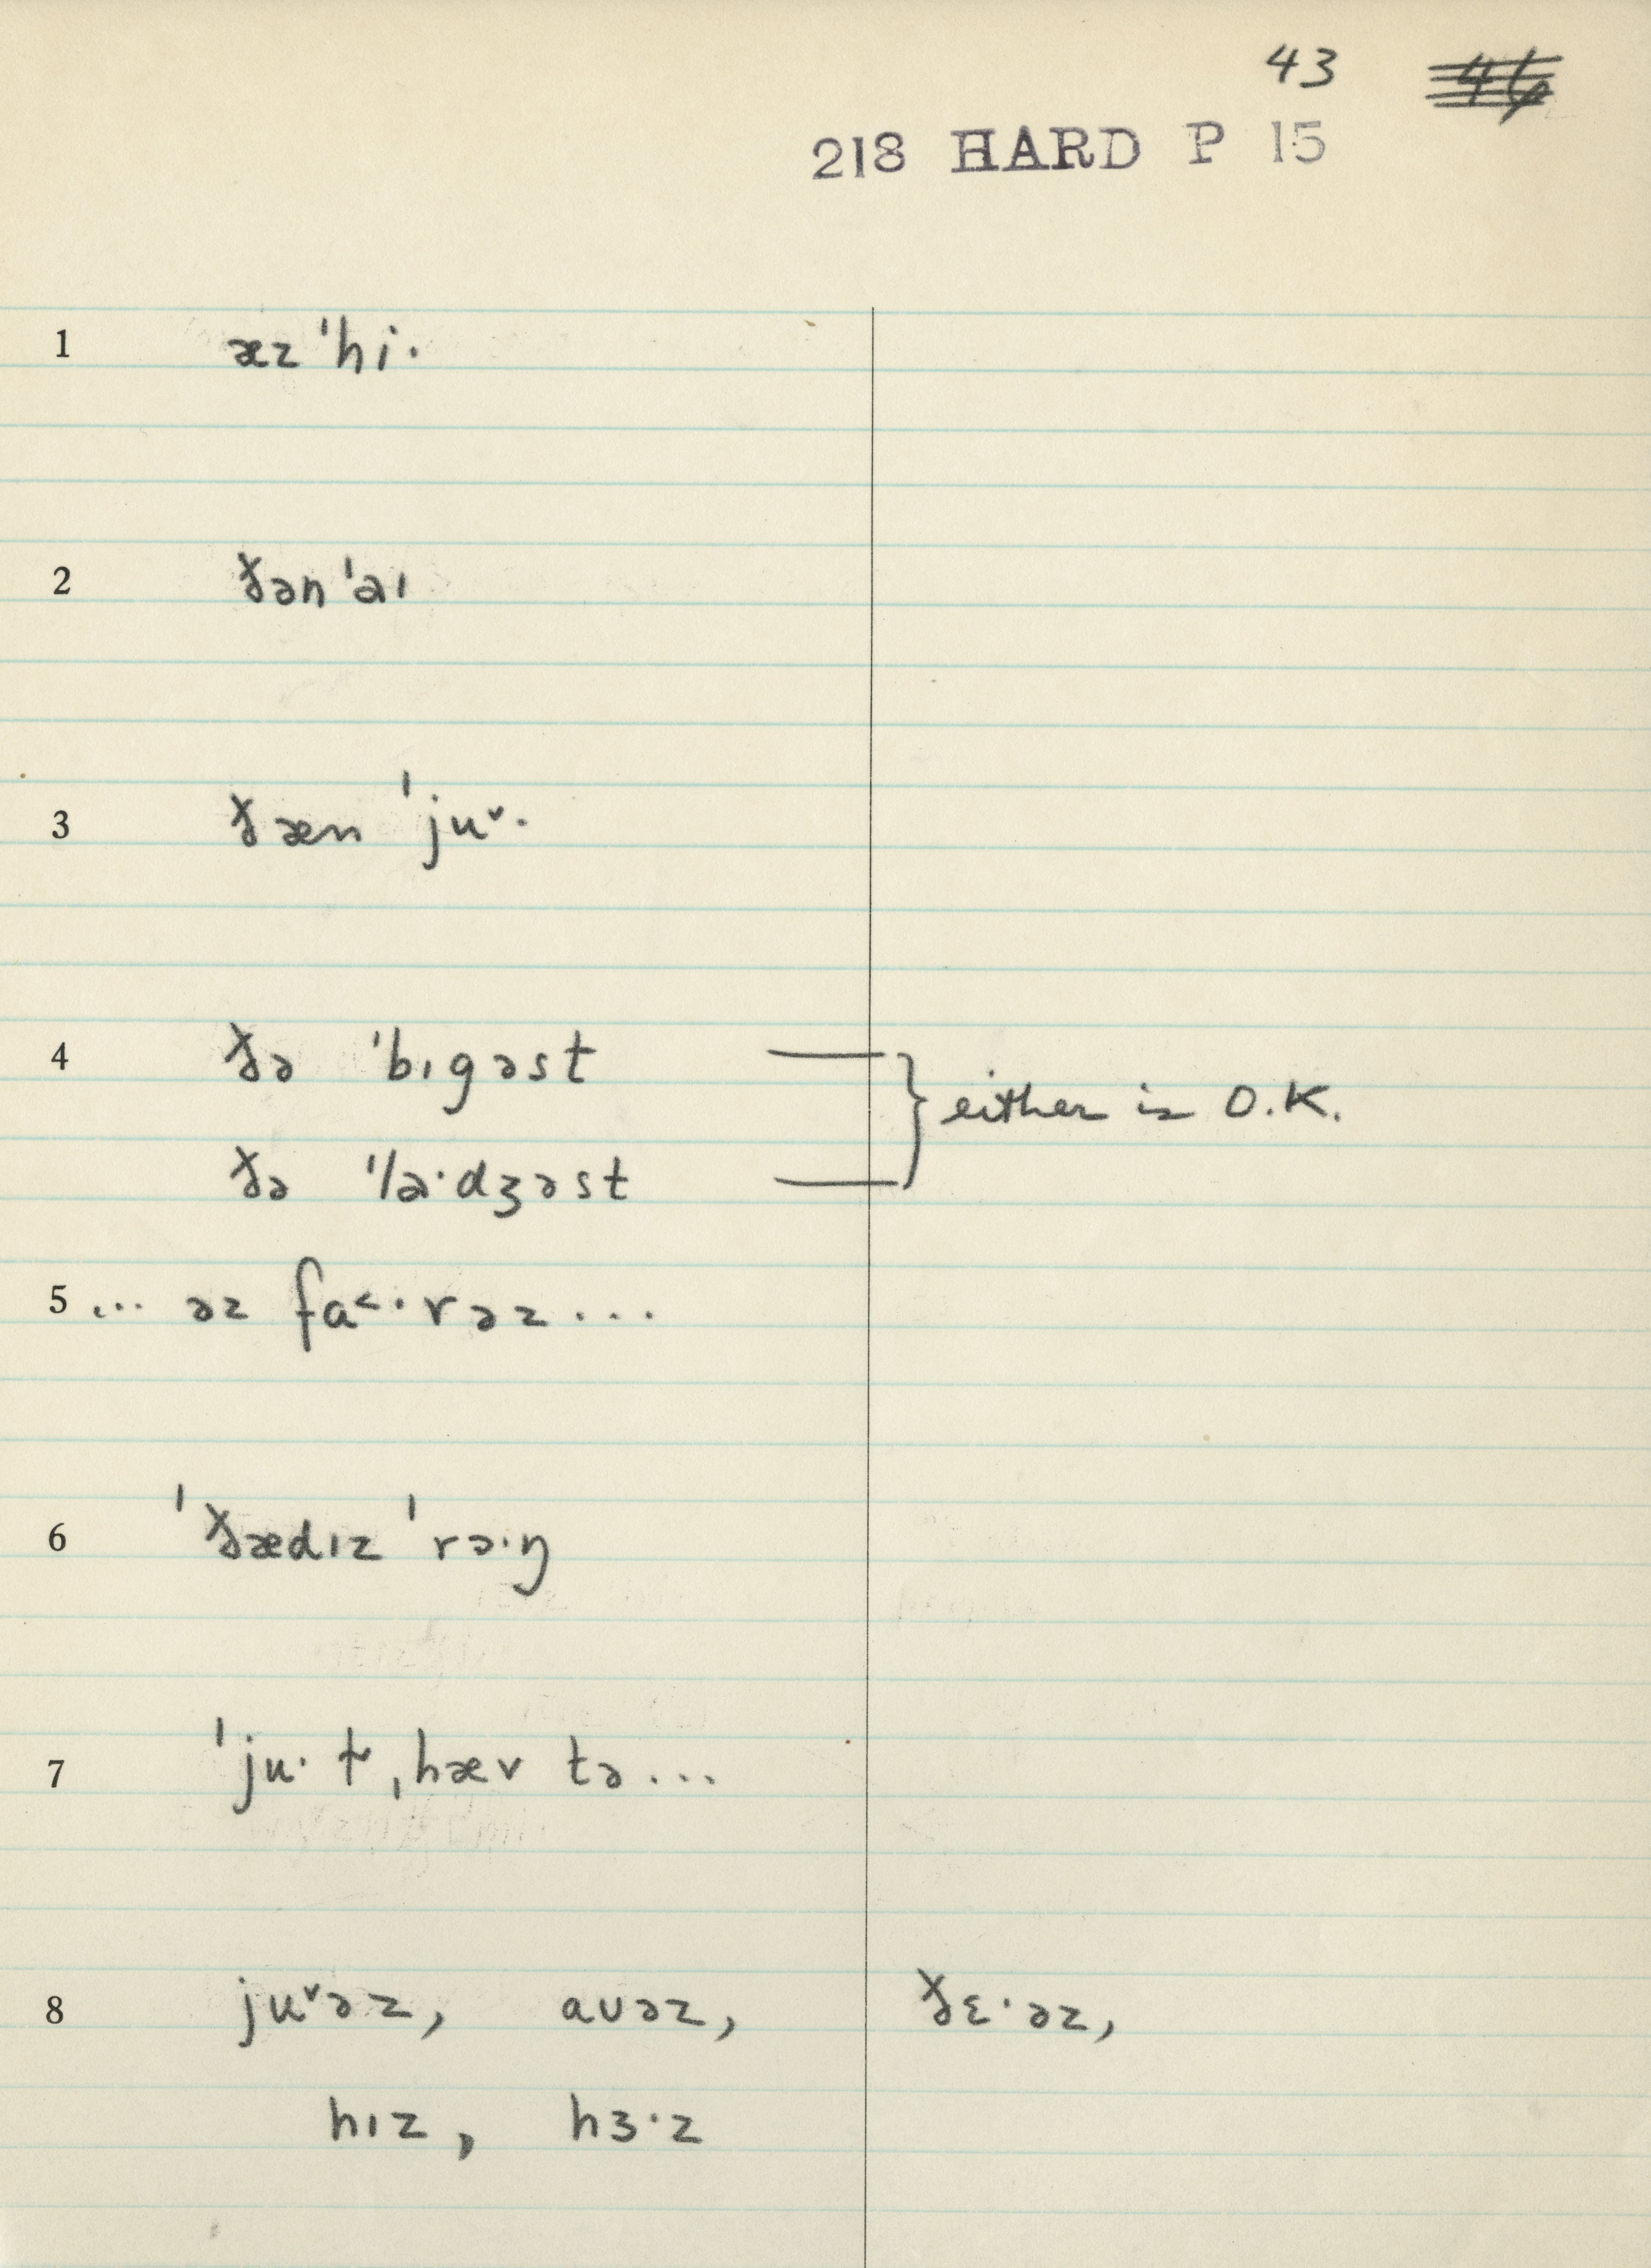 43 46
218 HARD P 15
1 æz ˈhi·
2 ðən ˈaɪ
3 ðæn ˈju˅·
4 ðə ˈbɪgəst
either is O.K.
ðə ˈla·dʒəst
5 ... əz fa˂·rəz ...
6 ˈðædɪz ˈrɔ·ŋ
7 ˈju· t ˌhæv tə ...
8 ju˅əz, aʊəz, ðɛ·əz,
hɪz, hɜ·z